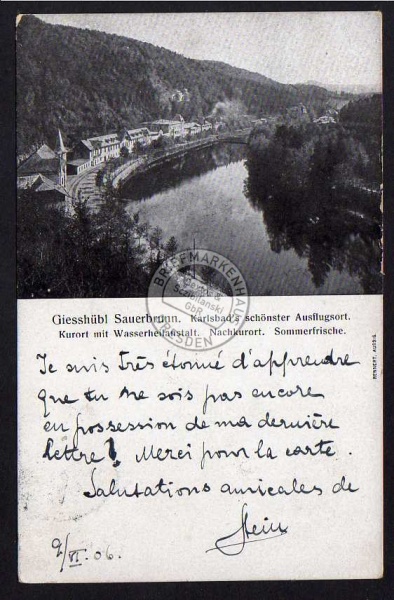 Giesshübl Sauerbrunn. Karlsbad's schönster Ausflugsort.
Kurort mit Wasserheilanstalt. Nachkurort. Sommerfrische.
BRIEFMARKENHAUS
DRESDEN
GbR
RENNERT, AUSSIG.
Je suis très étonné d'apprendre
que tu ne sois pas encore
en possession de ma dernière
lettre! Merci pour la carte.
Salutations amicales de
Stein
9/VI. 06.